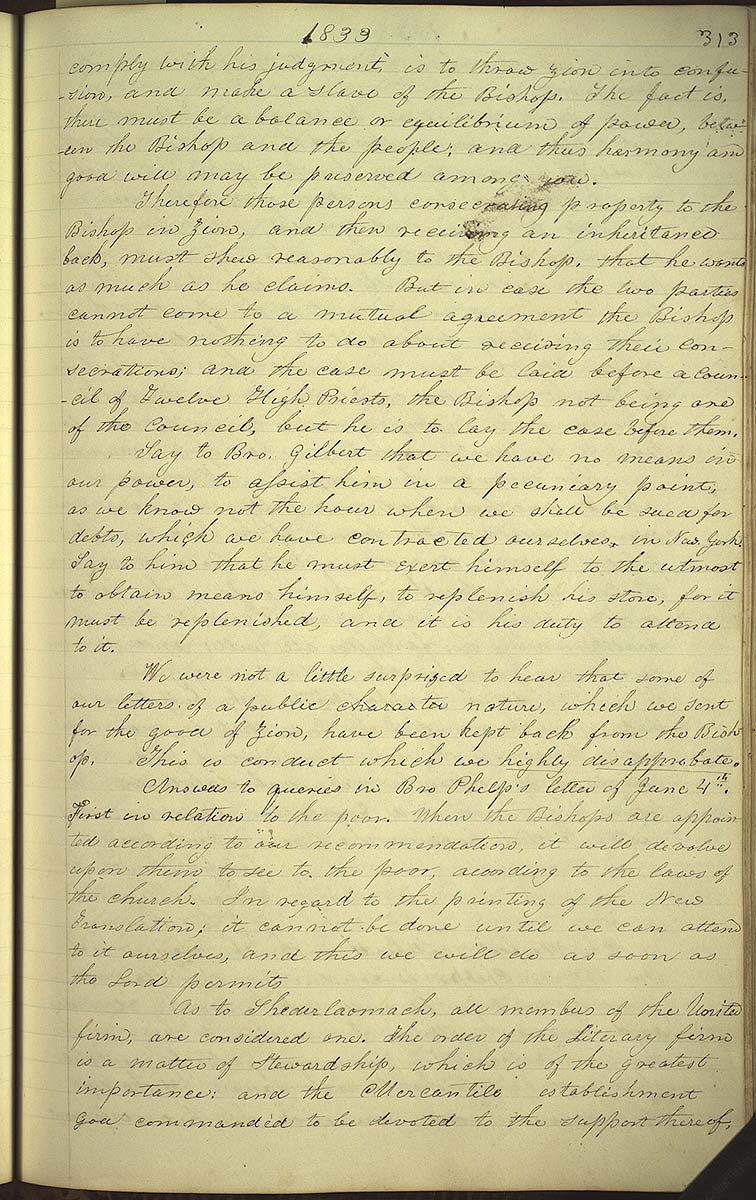 1833
313
comply with his judgment, is to throw Zion into confu-
-sion, and make a slave of the Bishop. The fact is,
there must be a balance or equilibrium of power, betw-
-een the Bishop and the people; and thus harmony and
good will may be preserved among you.
Therefore those persons consecrating property to the
Bishop in Zion, and then receiving an inheritance
back, must shew reasonably to the Bishop, that he wants
as much as he claims. But in case the two parties
cannot come to a mutual agreement the Bishop
is to have nothing to do about receiving their con-
secrations; and the case must be laid before a coun-
-cil of Twelve High Priests, the Bishop not being one
of the Council, but he is to lay the case before them.
Say to Bro. Gilbert that we have no means in
our power, to assist him in a pecuniary point,
as we know not the hour when we shall be sued for
debts, which we have contracted ourselves, in New York.
Say to him that he must exert himself to the utmost
to obtain means himself, to replenish his store, for it
must be replenished, and it is his duty to attend
to it.
We were not a little surprized to hear that some of
our letters of a public character nature, which we sent
for the good of Zion, have been kept back from the Bish-
op. This is conduct which we highly disapprobate.
Answers to queries in Bro Phelp's letter of June 4th.
First in relation to the poor. When the Bishops are appoin
ted according to our recommendation, it will devolve
upon them to see to the poor, acording to the laws of
the church. In regard to the printing of the New
Translation; it cannot be done until we can attend
to it ourselves, and this we will do as soon as
the Lord permits
As to Shederlaomach, all members of the United
firm, are considered one. The order of the Literary firm
is a matter of Stewardship, which is of the greatest
importance: and the Mercantile establishment
God commanded to be devoted to the support thereof,